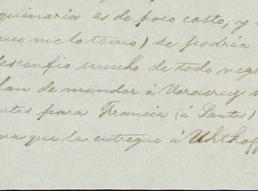 quinaria es de poco costo, y
uno me lo temo) se podria
desconfio mucho de todo nego
lan de mandar á Veracruz
ntes para Francia (á Santos)
na que la entregue á Uhthoff